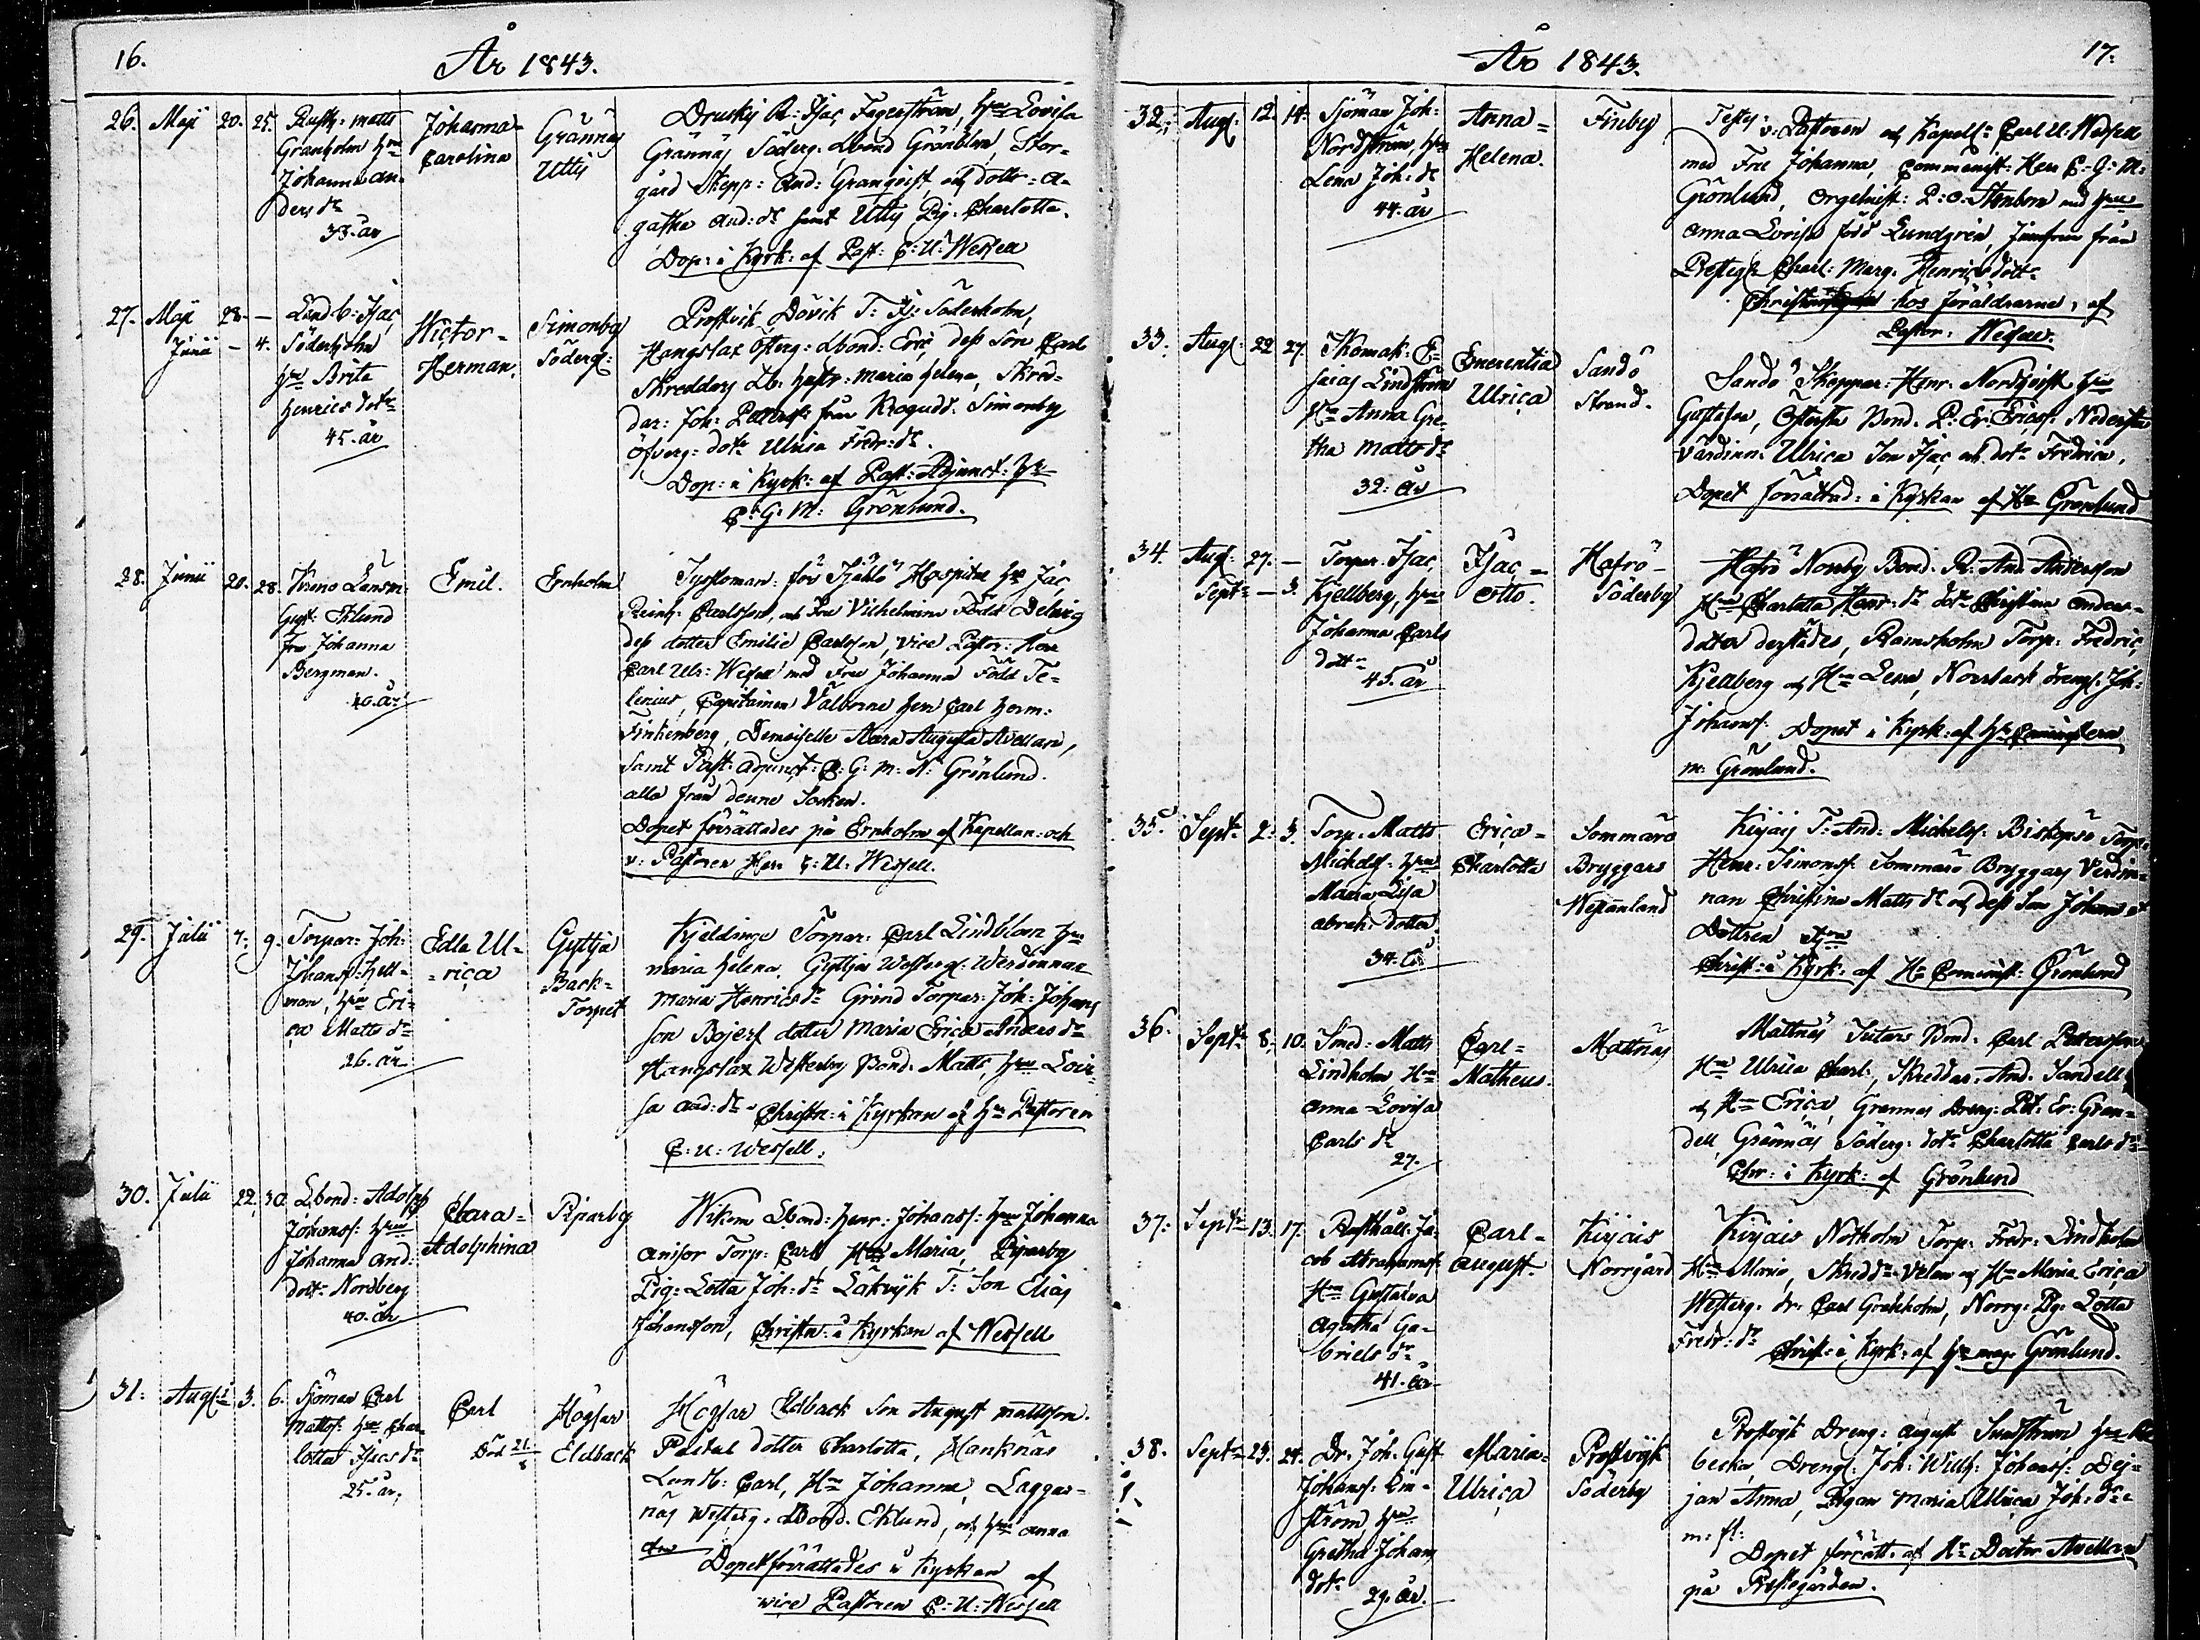 16.
År 1843.
26. Maji 20. 25.
Granholm hu
Johanna An-
ders dr
33. år
Johanna
Carolina
Grännäs
Uttis
Isac Fagerström, hu Lovisa
Grännäs Söderg. Lbond Grönblom, Stor-
gård Skepp: And: Granqvist, och dotter A-
gatha And: dr samt Uttis Pig. Charlotta.
Dop: i Kyrk: af Past: C: U: Wessell
27. Maji 28. —
Junii — 4.
Landb: Isac
Söderholm
hu Brita
Henrics dotr
45. år
Victor-
Herman.
Simonby
Söderg:
Prostvik Dövik T: Söderholm,
Hangslax Österg: Lbond: Eric, dess Son Carl
Skreddars Lb: hustr: Maria Helena, Skräd-
dar: Joh: Petters: från Simonby
Öfverg: dotr Ulrica Fredr: dr.
Dop: i Kyrk: af Past: Adjunct: Hr
C: G: M: Grönlund.
28. Junii 20. 28.
Krono Länsm:
Gust: Eklund
Fru Johanna
Bergman.
40. år
Emil.
Ernholm
Sysloman: för Själö Hospital Hr Jac,
Reinh: Carlsson, och Fru Vilhelmina Född Delwig
dess dotter Emilie Carlsson, Vice Pastor: Herr
Carl Ulr: Wessell med Fru Johanna Född Te-
lenius, Capitainen Välborne Herr Carl Herm:
Finkenberg, Demoiselle Aura Augusta Avellan,
Samt Past: Adjunct: C: G: M: N: Grönlund.
alla från denne Socken.
Dopet förrättades på Ernholm af Kapellan: och
v: Pastoren Herr C: U: Wessell.
29. Julii 7. 9.
Torpar: Joh:
Johanss: Hell-
man, hu Eri-
ca Matts dr
26. år
Edla Ul-
rica
Gyttja
Back-
Torpet
Kjeldinge Torpar: Carl Lindblom hu
Maria Helena, Gyttja Westerg: Werdinnan
Maria Henrics dr Grind Torpar: Joh: Johans
son dotter Maria Erica Anders dr
Hangslax Westerby Bond: Matts, hu Lovi-
sa And: dr Christn: i Kyrkan af Hr Pastoren
C: U: Wessell.
30. Julii 22. 30.
Lbond: Adolph
Johanss: hu
Johanna And:
dotr Nordberg
40. år
Clara-
Adolphina
Piparby
Wikom Lbond: Henr: Johanss: hu Johanna
Anisor Torp: Carl, Hu Maria, Piparby
Pig: Lotta Joh: dr Läkvik T: Son Elias
Johansson, Christn: i Kyrkan af Wessell
31. Aug: 3. 6.
Sjöman Carl
Mattss: hu Char-
lotta Isacs dr
25. år,
Carl
Död 21/8
Högsar
Eldback
Högsar Eldback Son August Mattsson.
dotter Charlotta, Hanknäs
Landb: Carl, Hu Johanna, Laggar-
näs Westerg. Lbond. Eklund, och hu Anna
Dopet förrättades i Kyrkan af
vice Pastoren C: U: Wessell
År 1843.
17.
32. Aug: 12. 14.
Sjöman Joh:
Nordström, hu
Lena Joh: dr
44. år
Anna-
Helena.
Finby
v: Pastoren och Kapell: Carl U: Wessell
med Fru Johanna, Comminist: Herr C: G: M:
Grönlund, Orgelnist: P: O: Stenbom med hu
Anna Lovisa född Lundgrén, Jumfrun från
Prestg: Charl: Marg. Henricsdotr
hos föräldrarna, af
Pastor: Wessell.
33. Aug: 22 27.
Skomak: E-
saias Lindström
Hu Anna Gre-
tha Matts dr
32. år
Emerentia
Ulrica
Sandö
Strand.
Sandö Skeppar: Henr: Nordqvist hu
Gustafva, Bond. P: Er: Ericss:
Värdinn: Ulrica Son Isac och dotr Fredrica.
Dopet förrättad: i Kyrkan af Hr Grönlund
34. Aug: 27. —
Septr — 3.
Torpar Isac
Kjellberg, hu
Johanna Carls
dotr
45. år
Isac-
Otto.
Hafrö-
Söderby
Hafrö Norrby Bond. R: And. Andersson
Hu Charlotta dr dotr Christina Anders-
dotter derstädes, Ramsholm Torp: Fredric
Kjellberg och Hu Lena, Norrback dreng: Joh:
Johanss: Dopet i Kyrk: af Hr
M: Grönlund.
35. Septr 2. 3.
Torp. Matts
Michelss: hu
Maria Lisa
Abrah: Dotter
34. år
Erica-
Charlotta
Sommarö
Bryggars
Kirjais T: And: Michelss: Biskopsö Torp:
Henr: Simonss: Sommarö Bryggars Verdin-
nan Christina Matts dr och dess Son Johan
Dottren
Christ: i Kyrk: af Hr Cominist: Grönlund
36. Septr 8. 10.
Smed: Matts
Lindholm, Hu
Anna Lovisa
Carls dr
27.
Carl-
Matheus.
Mattnäs
Mattnäs Sutars Bond. Carl Pettersson
Hu Ulrica Charl:, Skreddar: And. Sandell
och Hu Erica, Grannas Dreng: Pet: Er: Gran-
dell, Grännäs Söderg: dotr Charlotta Carls dr
Chr: i Kyrk: af Grönlund
37. Septr 13. 17.
Rosthåll: Ja-
cob Abrahamss:
Hu Gustafva
Agatha Ga-
briels dr
41. år
Carl-
August.
Kirjais
Norrgård
Kirjais Notholm Torp: Fredr: Lindholm
Hu Maria, Skredd: och Hu Maria Erica
Westerg. dr. Carl Granholm, Norrg: Pig. Lotta
Fredr: dr Christ: i Kyrk: af Hr Mag. Grönlund.
38. Septr 23. 24.
Dr. Joh. Gust
Johanss: Lin-
ström hu
Gretha Johans
dotr
29. år.
Maria-
Ulrica
Prostvik
Söderby
Prostvik Dreng: August Sundström hu Re
becka, Dreng: Joh: Wilh: Johanss: Dej-
jan Anna, Pigan Maria Ulrica Joh: dr
m: fl:
Dopet förrätt: af Hr Doctor Avellan
på Prestegården.